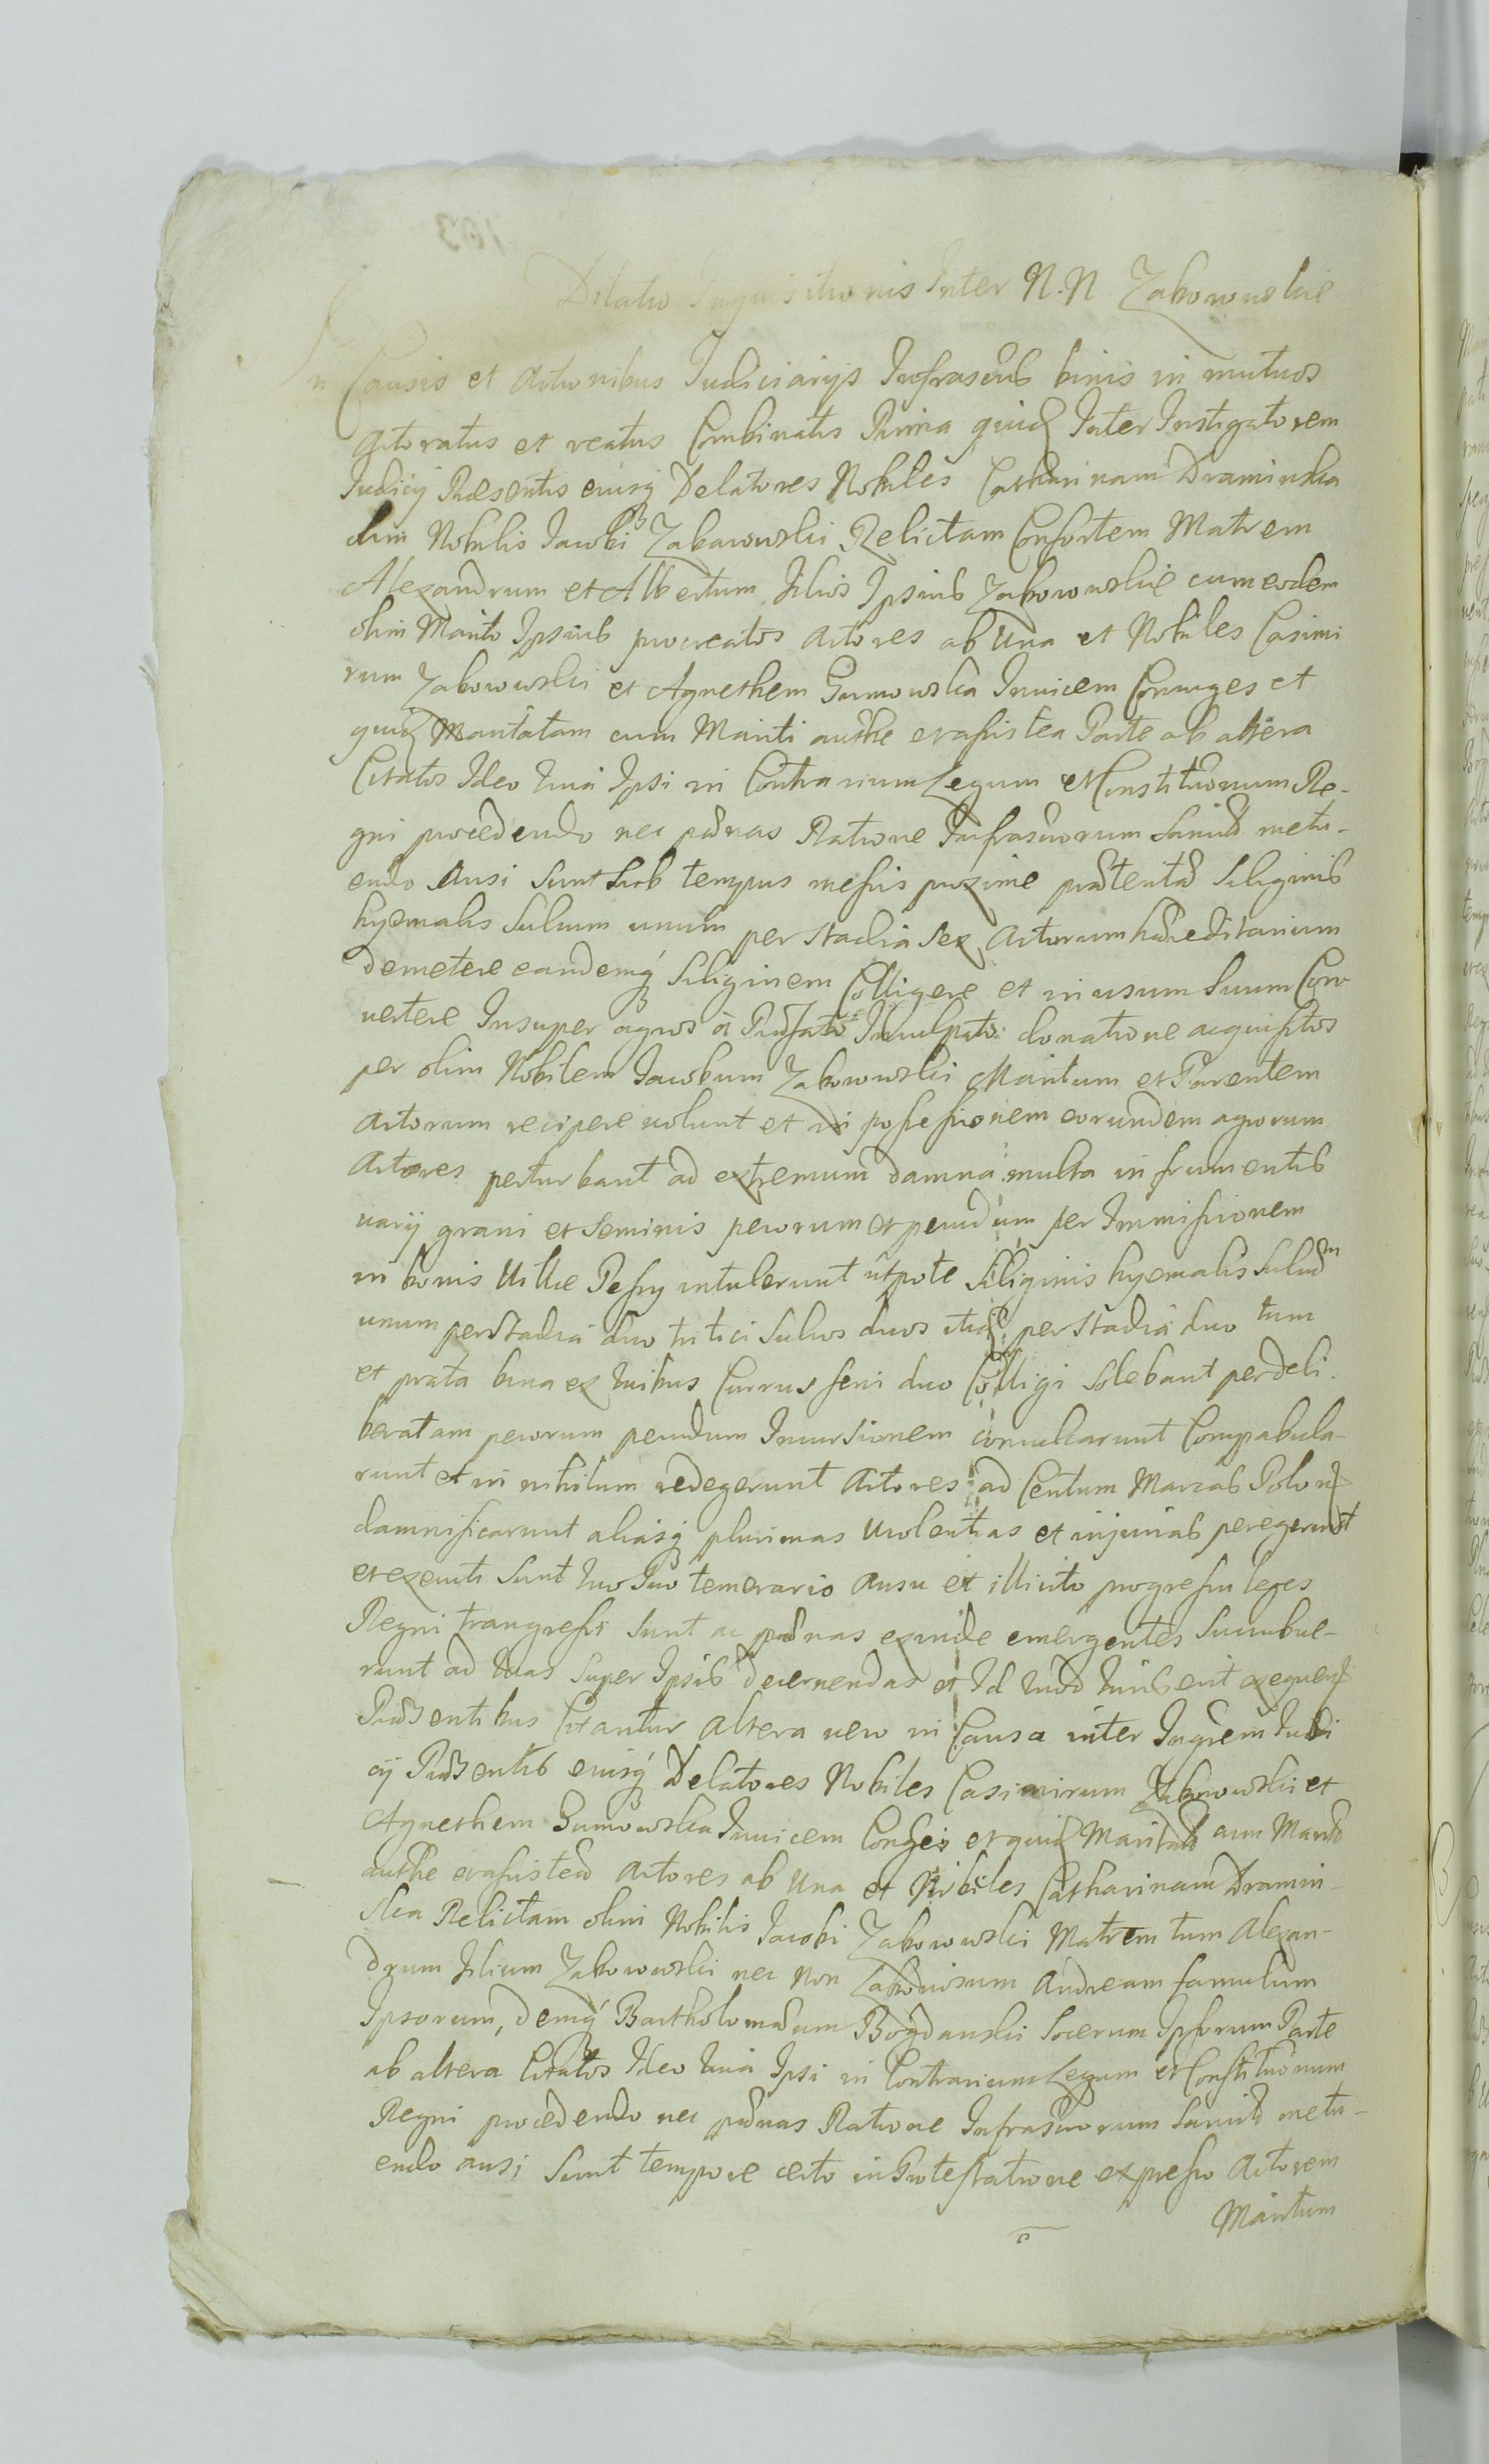 Dilatio Inquisitionis Inter N. N. Zakowowskie
In Causis et Actionibus Judiciarijs Infrascrib binis in mutuos
Actoratus et reatus Combinatis Prima quid Inter Instigatorem
Judicij Praesentis eiusq Delatores Nobiles Catharinam Draminska
olim Nobilis Jacobi Zakowowski Relictam Consortem Matrem
Alexandrum et Albertum Filios Ipsius Zakowowskie cum eodem
olim Marito Ipsius procreatos Actores ab Una et Nobiles Casimi
rum Zakowowski et Agnethem Gumowska Invicem Coniuges et
quid Maritatam cum Mariti authe et assistea Parte ab altera
Citatos Ideo Quia Ipsi in Contrarium Legum et Constituonum Re-
gni procedendo nec paenas Ratione Infrascriorum Sancid metu-
endo Ausi Sunt Sub tempus messis proxime praeterita Siliginis
hyemalis Sulcum unum per Stadia Sex Actorum haereditarium
demetere eandemq Siliginem Colligere et in usum Suum Con
vertere Insuper agros a Praefato Inculpato donatione acquisitos
per olim Nobilem Jacobum Zakowowski Maritum et Parentem
Actorum recipere volunt et in possessionem eorundem agrorum
Actores perturbant ad extremum damna multa in frumentis
varij grani et Seminis pecorum et pecudum per Immissionem
in bonis Villae Pessy intulerunt utpote Siliginis hyemalis Sulcum
unum per Stadia duo tritici Sulcos duos itid per Stadia duo tum
et prata bina ex quibus Currus feni duo Colligi Solebant per deli
beratam pecorum pecudum Incursionem conculcarunt Compabula-
runt et in nihilum redegerunt Actores ad Centum Marcas Polon
damnificarunt aliasq plurimas violentias et injurias peregerunt
et executi Sunt quo Suo temerario Ausu et illicito progressu leges
Regni trangressi Sunt ac paenas exinde emergentes Succubue-
runt ad quas Super Ipsis decernendas et Id quod Juris erit exequend
Praesentibus Citantur Altera vero in Causa inter Ingrem Judi
cij Praesentis eiusq Delatores Nobiles Casimirum Zakowowski et
Agnethem Gumowska Invicem Conges et quid Maritata cum Marito
authe et assistea Actores ab Una et Nobiles Catharinam Dramin-
ska Relictam olim Nobilis Jacobi Zakowowski Matrem tum Alexan-
drum Filium Zakowowski nec Non Laboriosum Andream famulum
Ipsorum, demq Bartholomaeum Bogdanski Socerum Ipsorum Parte
ab altera Citatos Ideo Quia Ipsi in Contrarium Legum et Constituonum
Regni procedendo nec paenas Ratione Infrascriorum Sancid metu-
endo ausi Sunt tempore certo in Protestatione expresso Actorem
Maritum